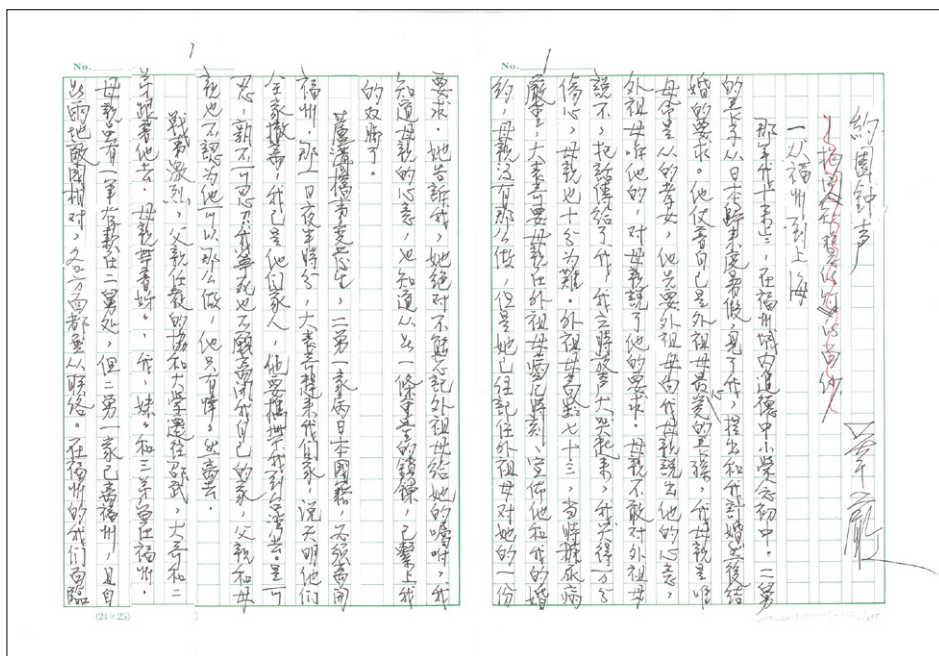 No.
約園钟声
华嚴
一、从福州到上海
那一年我廿一岁上,在福州城内道德中小学念初中。二舅
的長子从日本歸来度暑假,見了我,提出和我訂婚然後結
婚的要求。他仗着自己是外祖母最爱的長孫,我母親是唯
母命是从的孝女,他先要外祖母向我母親説出他的心意,
外祖母听他的,对母親説了他的要求。母親不敢对外祖母
説不,把話傳给了我,我立時放声大哭起来,我哭得万分
傷心,母親也十分为難。外祖母高齡七十三,当時糖尿病
嚴重,大表哥要母親在外祖母病危時刻,宣佈他和我的婚
約,母親没有那么做,但是她已经記住外祖母对她的一份
No.
要求。她告訴我,她絕对不能忘記外祖母给她的囑咐,我
知道母親的心意,也知道从此一條重重的鎖鍊,已繫上我
的双脚了。
蘆溝橋事变發生,二舅一家两日本國籍,必须离開
福州。那一日夜半時分,大表哥趕来我们家,説天明他们
全家撤离,我已是他们家人,他要攜帶我到台湾去。是可
忍,孰不可忍?我寧死也不願离開我自己的家,父親和母
親也不認为他可以那么做,他只有悻悻然离去。
戰爭激烈,父親任教的協和大学遷往邵武,大哥和二
弟跟着他去。母親带着妳妳、我、妹妹和三弟留在福州。
母親只有一筆存款在二舅处,但二舅一家已离福州,且自
此兩地敵國相对,又方面都無从联络。在福州的我们面臨
(24×25)